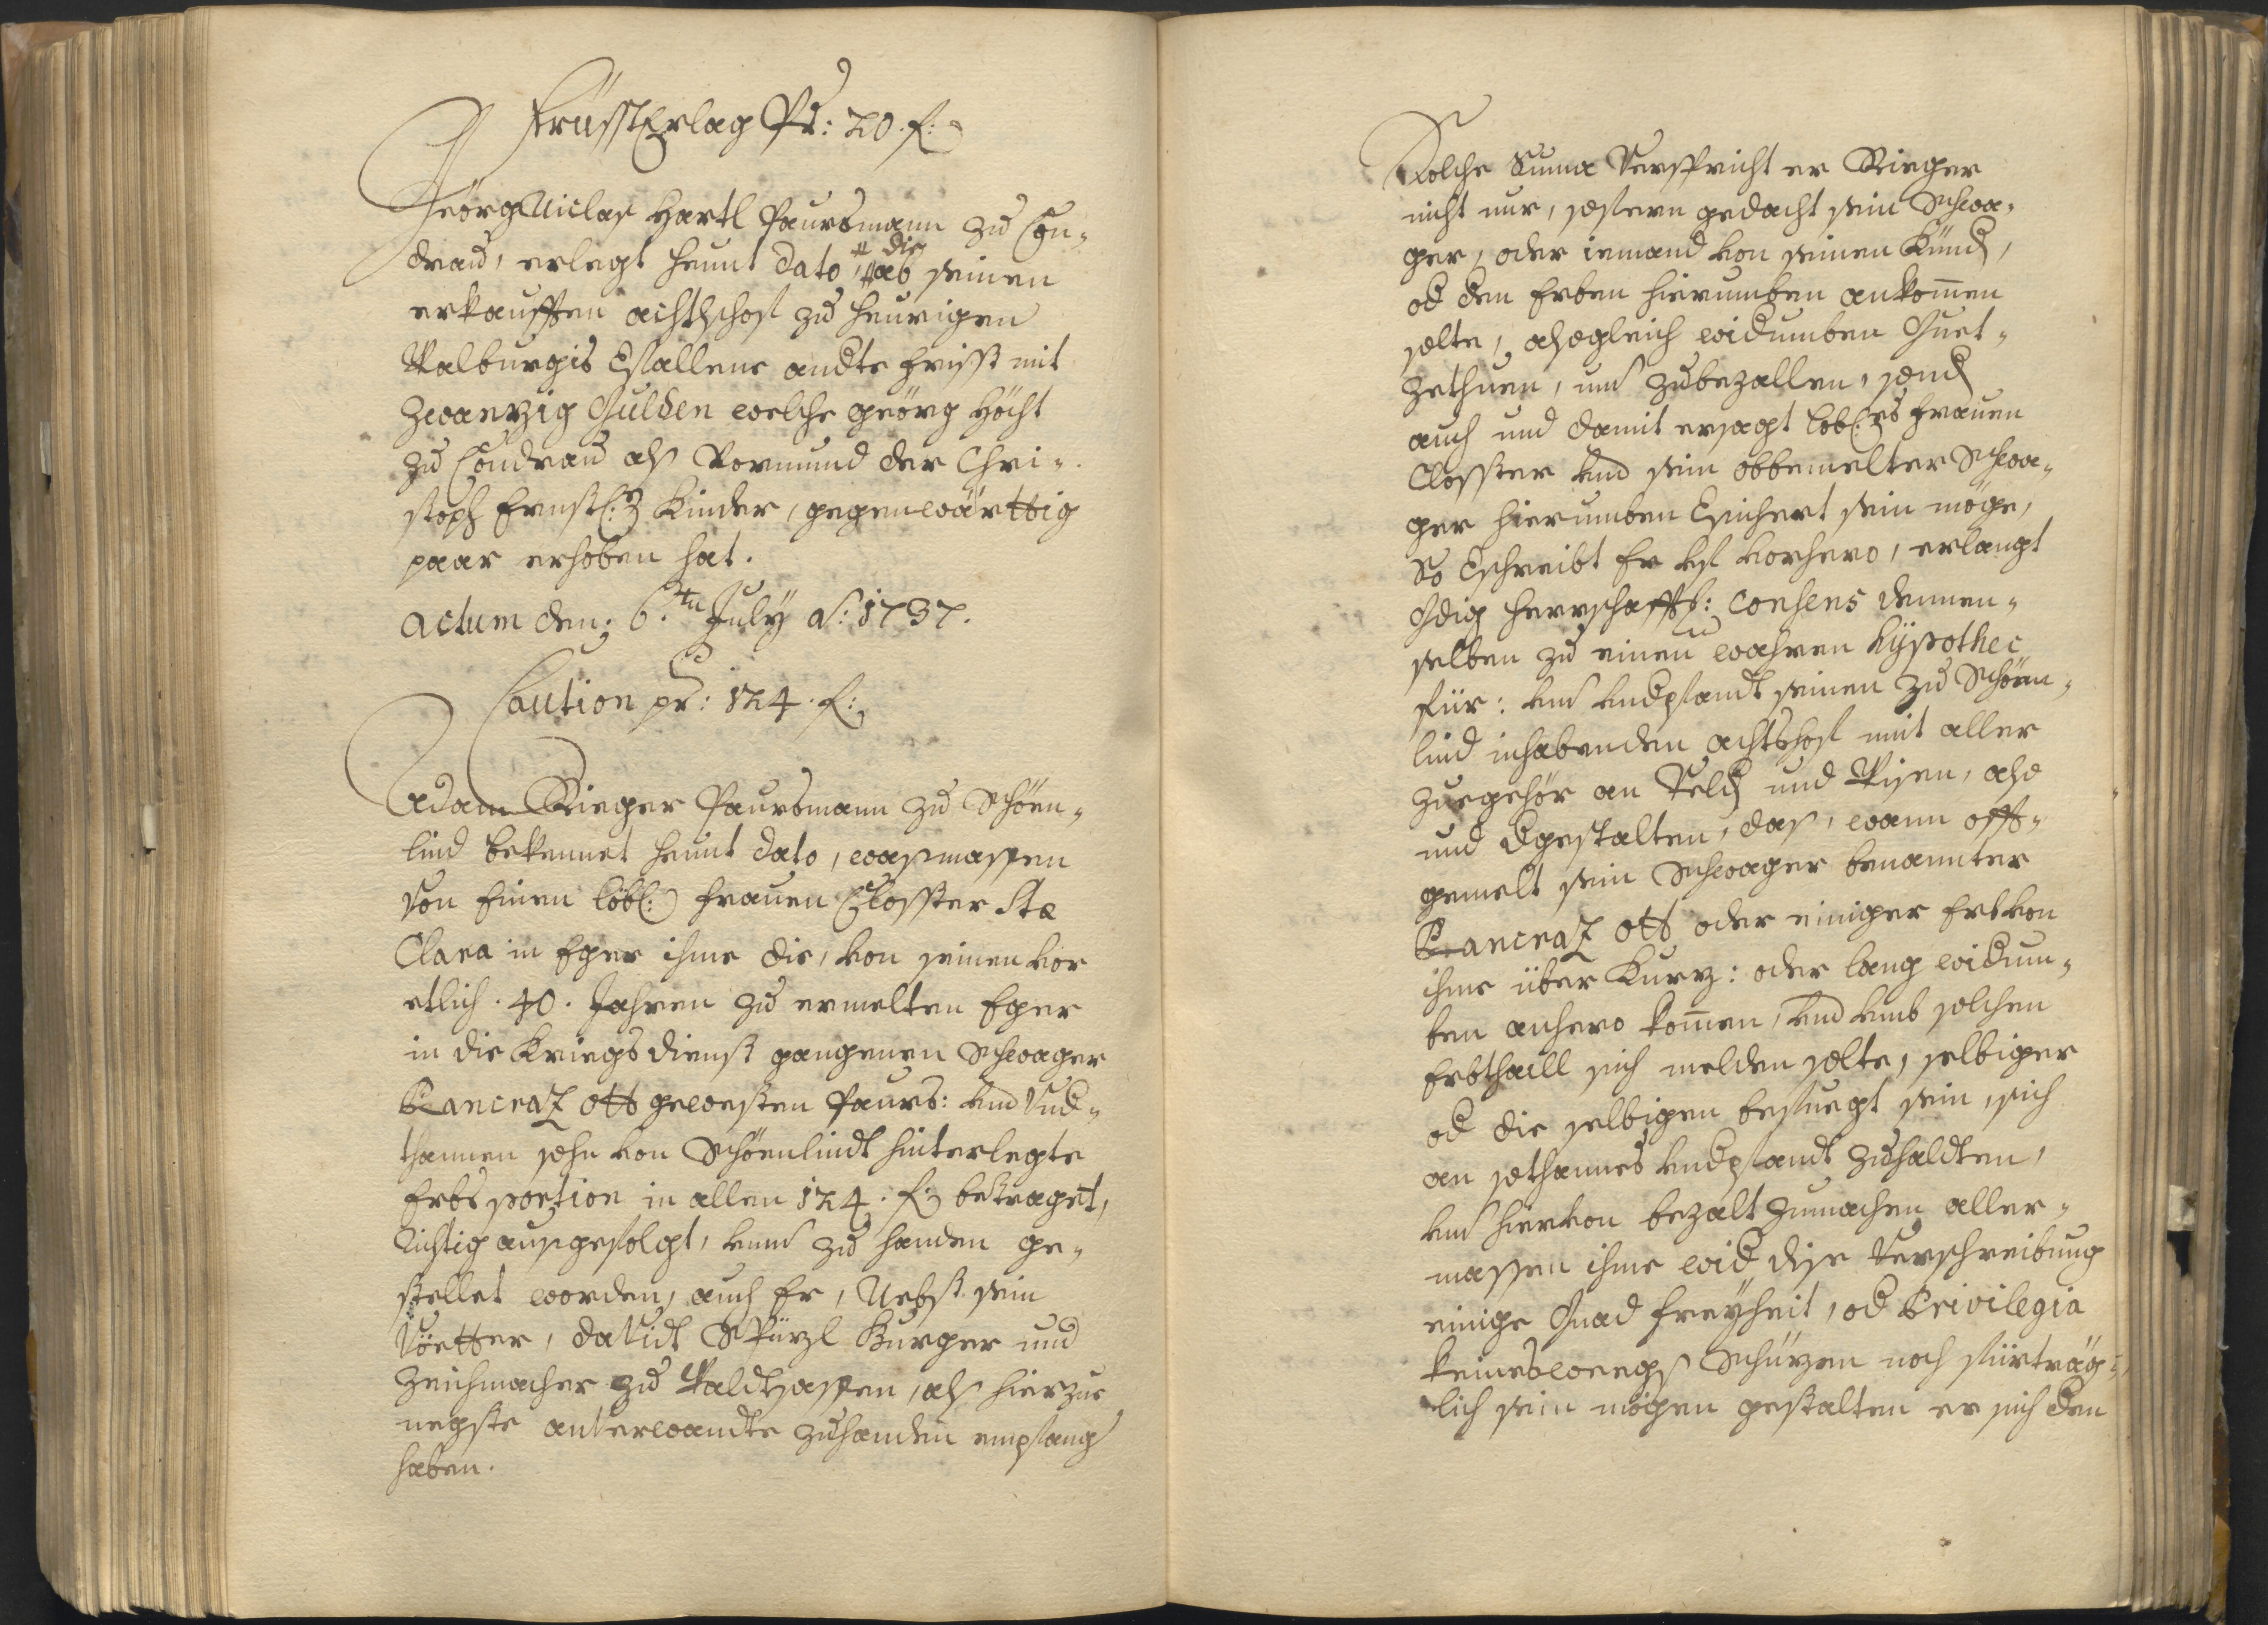 Früsst Erlag Pr: 20. f:
Geörg Niclaß Hartl Paursmann zu Con¬
drau, erlegt heunt dato, die ab seinen
erkaufften achtlhof zu heurigen
Walburgis Efallene andte Frisst mit
Zwanzig Gulden welche geörg Höcht
zu Condrau alß Vormund der Chri¬
stoph Ernst Kinder, gegenwärttig
paar erhoben hat.
Actum den: 6.ten July ao: 1737.
Caution pr: 124. f:
Adam Rieger Paursmann zu Schöen¬
lind bekennet heunt dato, wasmassen
Von Einen löbl: Frauen Closster Stæ
Clara in Eger ihme die, von seinen vor
etlich. 40. Jahren zu ermelten Eger
in die Kriegs dienst gangenen Schwager
Pancraz Ott gewesten Paurs: und Und¬
thannen sohn von Schöenlindt hinterlegte
Erbsportion in allen 124. f: betraget,
Richtig ausgefolgt, unnd zu handen ge¬
stellet worden, auch Er, Nebst sein
Vöetter, daVidt Spürzl Burger und
Zeichmacher zu Waldsassen, alß hierzue
negste anverwandte zuhanden empfang
haben.
Solche Suma Verspricht er Rieger
nicht nur, sofern gedacht sein Schwa¬
ger, oder iemand von seinen Kündl,
od den Erben hierumben ankommen
solte, alsogleich widumben Guet¬
zethuen, und zubezallen, sondl
auch und damit ersagt löbl: Frauen
Closster und sein obbemelter Schwa¬
ger hierumben Esichert sein möge,
So Eschreibt Er vf vorhero, erlangt
Gdig herrschafftl: Consens dennen¬
selben zu einen wahren Hÿpothec
für: und undpfandt seinen zu Schöen¬
lind inhabenden achtlhof mit aller
zuegehör an Veldl und Wisen, also
und dgestalten, daß, wann offt¬
gemelt sein Schwager benannter
Pancraz Ott oder einiger Erb von
ihme über Kurz: oder lang widum¬
ben anhero komen, und umb solchen
Erbthaill sich melden solte, selbiger
od die selbigen befuegt sein, sich
an sothannes undpfandt zuhaldten,
und hiervon bezalt zumachen aller¬
massen ihme wid dise Verschreibung
einige Gnad Freyheit, od Privilegia
keineswegs Schüzen noch fürträg¬
lich sein mögen gestalten er sich den